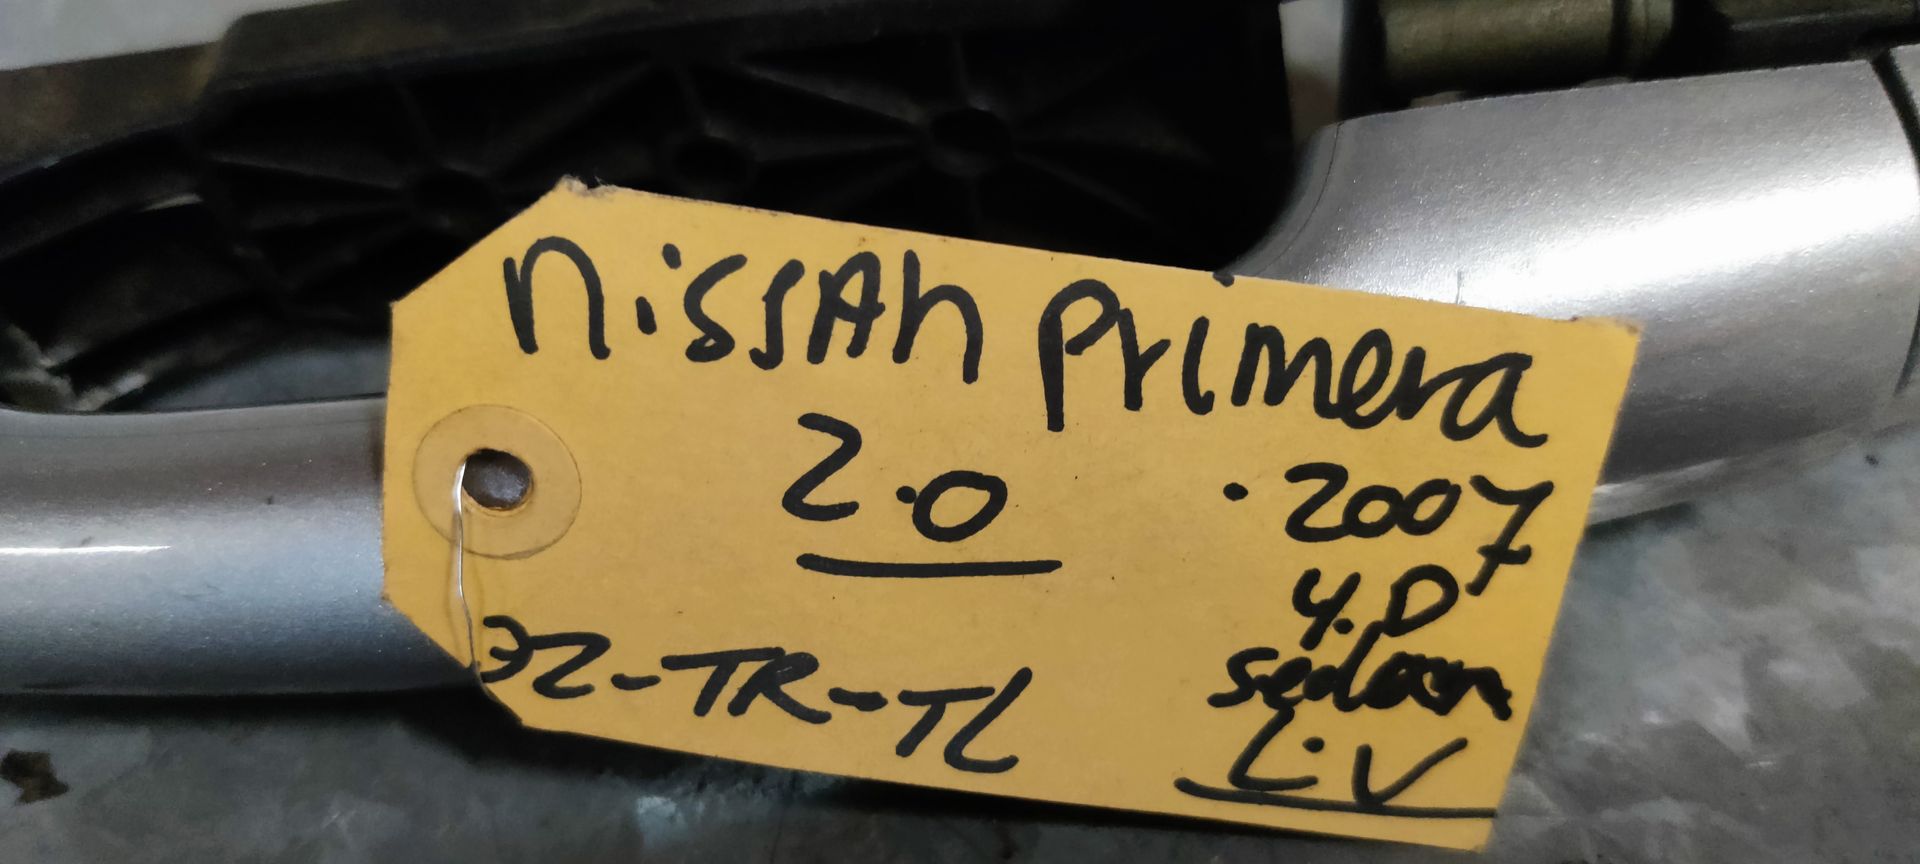 nissAn primera
2.0
.2007
4.D
sedaan
32-TR-TL
L.V